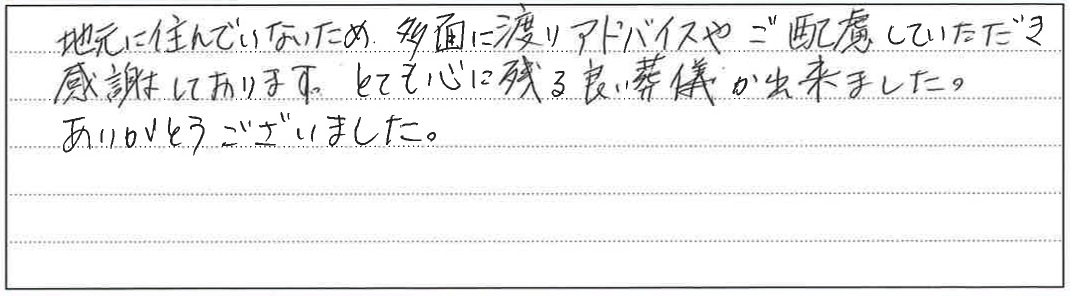 地元に住んでいないため 多面に渡りアドバイスや ご配慮していただき
感謝しております。とても心に残る良い葬儀が出来ました。
ありがとうございました。